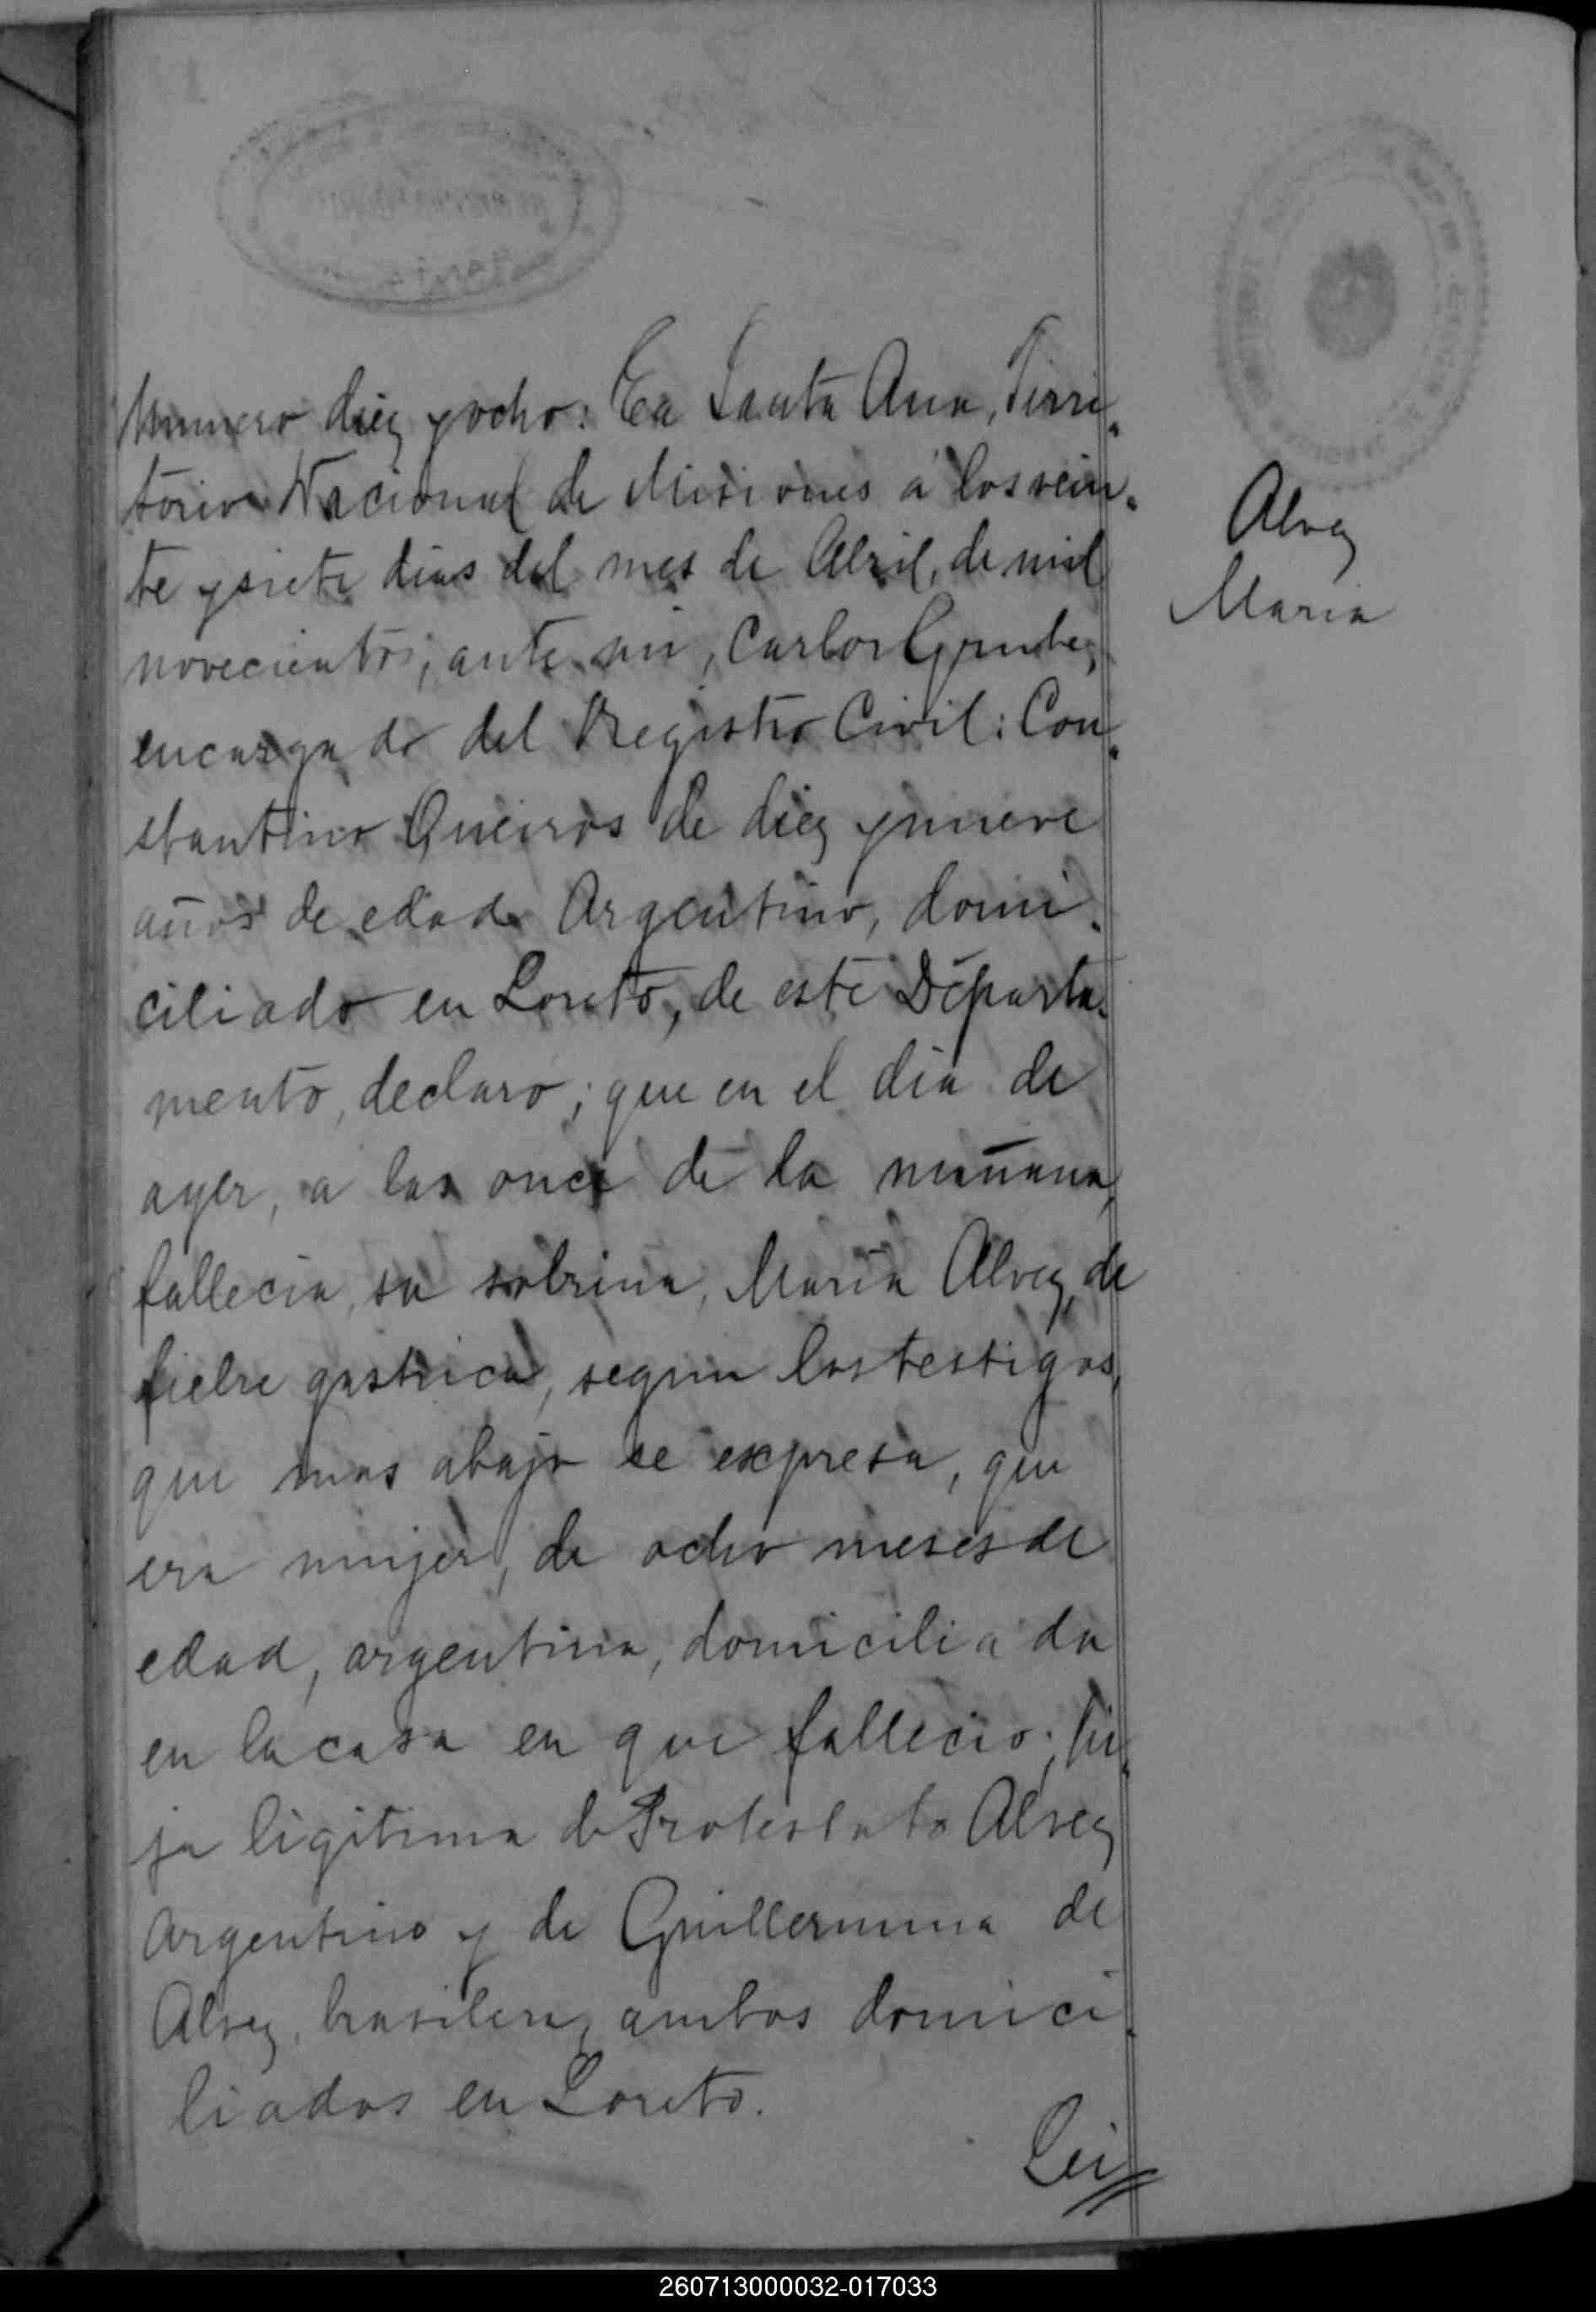 Numero diez y ocho: En Santa Ana, Terri-
torio Nacional de Misiones á los vein-
te y siete dias del mes de Abril, de mil
novecientos, ante mi, Carlos
encargado del Registro Civil: Con-
stantino Queiros de diez y nueve
años de edad Argentino, domi-
ciliado en Loreto, de este Departa-
mento, declaro; que en el dia de
ayer, a las once de la mañana,
fallecia, su sobrina, Maria Alvez, de
fiebre gastrica, segun los testigos,
que mas abajo se expresa, que
era mujer, de ocho meses de
edad, argentina, domiciliada
en la casa en que fallecio; hi-
ja ligitima de Alvez
Argentino y de Guillermina de
Alvez, brasilera, ambos domici-
liados en Loreto.
Lei
Alvez
Maria
260713000032-017033